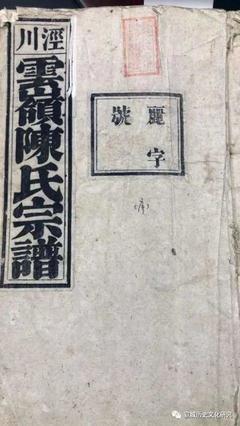 涇川
雲嶺陳氏宗譜
麗字
號
宣城历史文化研究